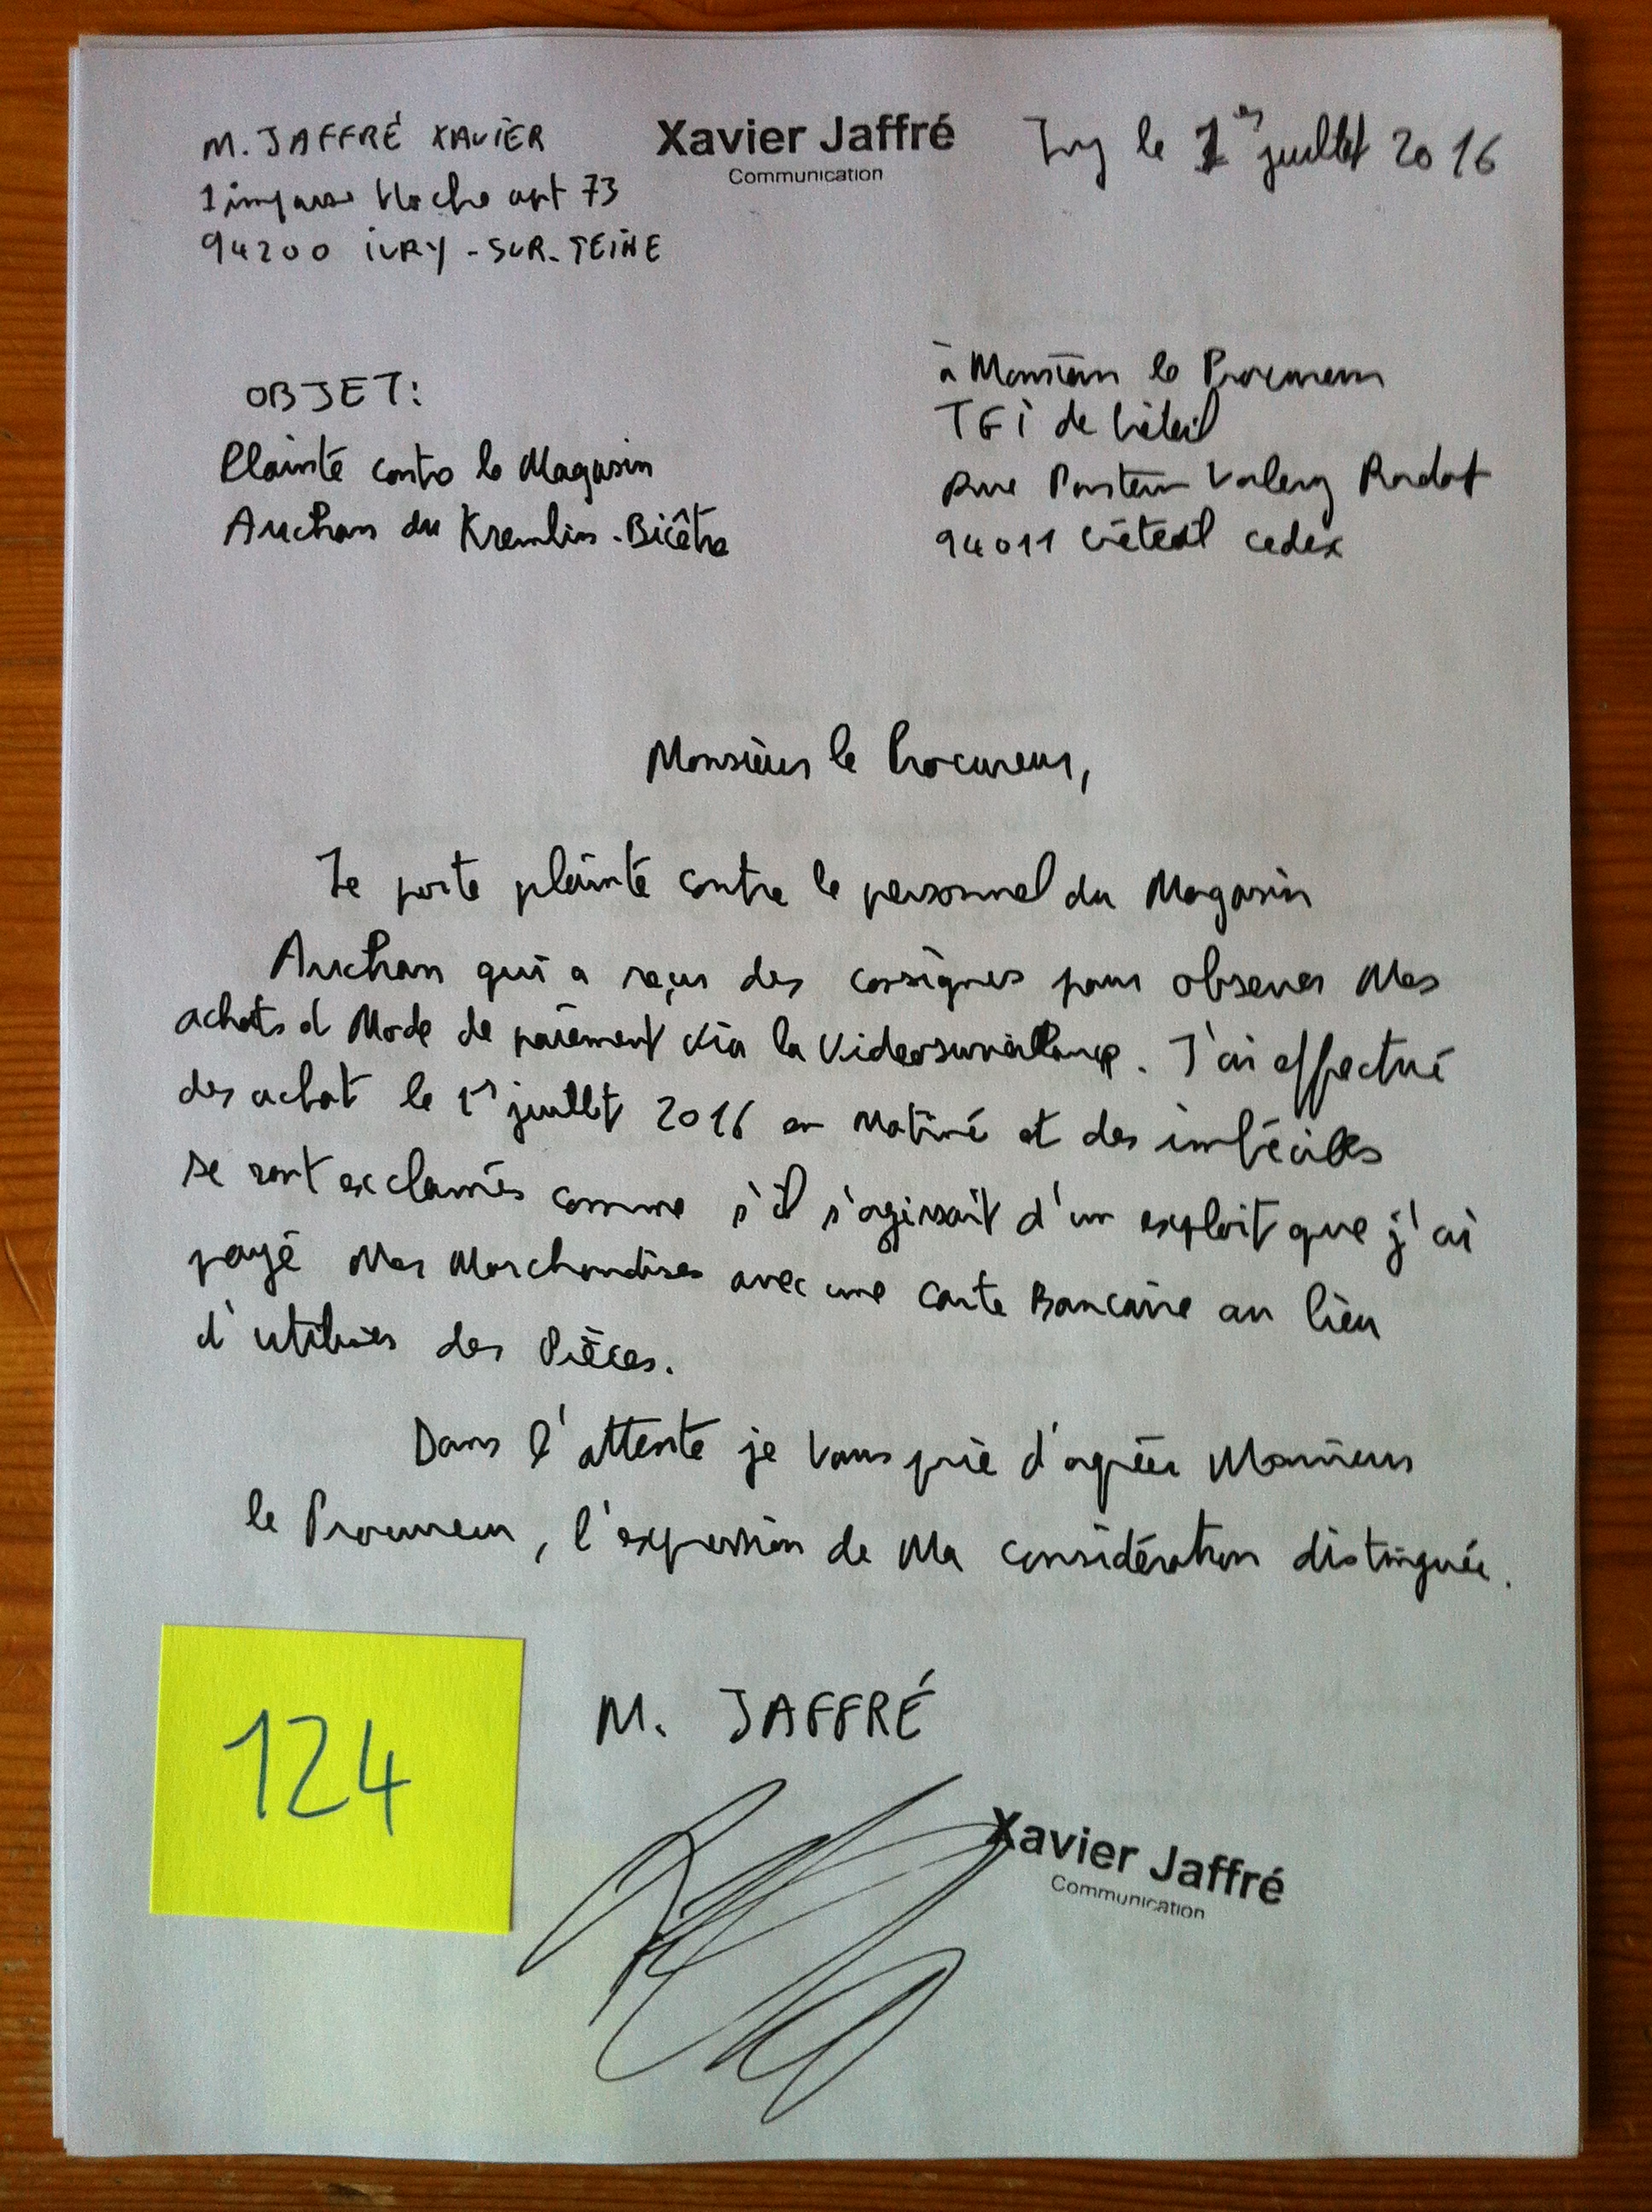 M. JAFFRÉ XAVIER
Xavier Jaffré
Communication
Ivry le 1er juillet 2016
1 impasse Hoche apt 73
94200 IVRY-SUR-SEINE
OBJET:
Plainte contre le Magasin
Auchan du Kremlin-Bicêtre
à Monsieur le Procureur
TGI de Créteil
rue Pasteur Valery Radot
94011 Créteil cedex
Monsieur le Procureur,
Je porte plainte contre le personnel du Magasin
Auchan qui a reçus des consignes pour observer Mes
achats et Mode de paiement via la Videosurveillance. J'ai effectué
des achat le 1er juillet 2016 en Matiné et des imbéciles
se sont exclamés comme s'il s'agissait d'un exploit que j'ai
payé Mes Marchandises avec une carte Bancaire au lieu
d'utiliser des Pièces.
Dans l'attente je vous prie d'agréer Monsieur
le Procureur, l'expression de Ma considération distinguée.
M. JAFFRÉ
124
Xavier Jaffré
Communication